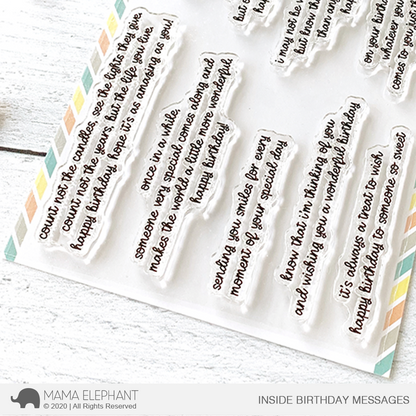 but
happ
i may not be w
but know tha
than any
hap
on your birth
whatever you
comes to you
count not the candles, see the lights they give
count not the years, but the life you live
happy birthday hope it's as amazing as you!
once in a while,
someone very special comes along and
makes the world a little more wonderful
happy birthday
sending you smiles for every
moment of your special day
know that i'm thinking of you
and wishing you a wonderful birthday
it's always a treat to wish
happy birthday to someone so sweet
MAMA ELEPHANT
© 2020 | All Rights Reserved
INSIDE BIRTHDAY MESSAGES